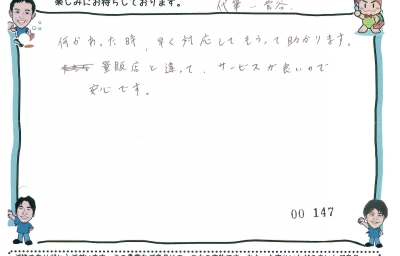 楽しみにお待ちしております。
代筆：菅谷
何かあった時、早く対応してもらって助かります。
量販店と違って、サービスが良いので
安心です。
00 147